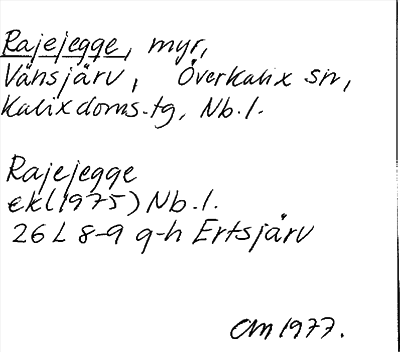 Rajejegge, myr,
Vänsjärv, Överkalix sn,
Kalixdoms.tg, Nb.l.
Rajejegge
ekl(1975) Nb.l.
26 L 8-9 g-h Ertsjärv
OM 1977.